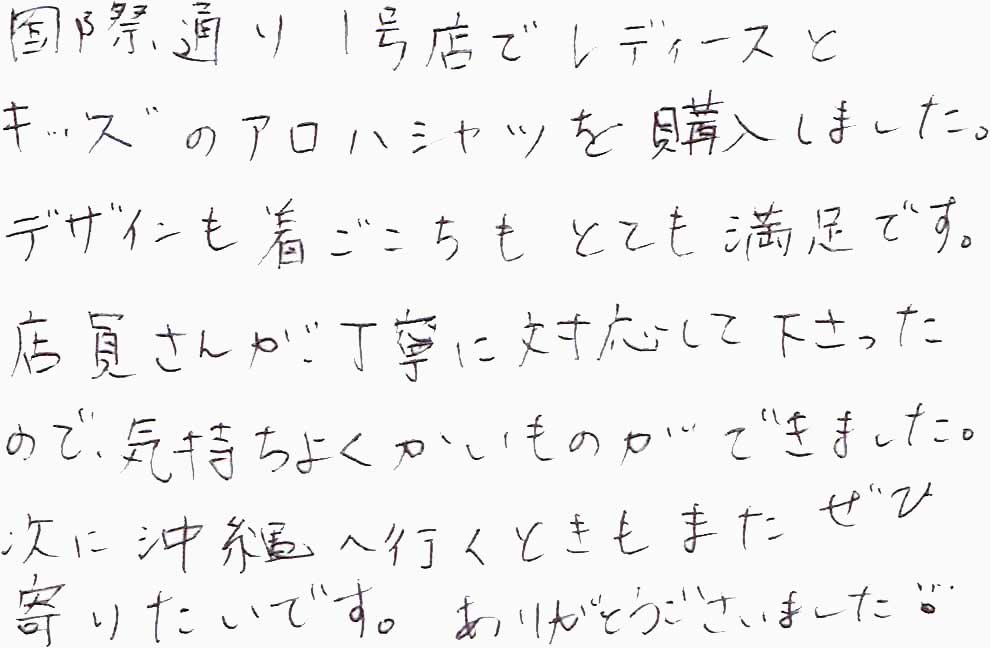 国際通り1号店でレディースと
キッズのアロハシャツを購入しました。
デザインも着ごこちもとても満足です。
店員さんが丁寧に対応して下さった
ので、気持ちよくかいものができました。
次に沖縄へ行くときもまたぜひ
寄りたいです。ありがとうございました